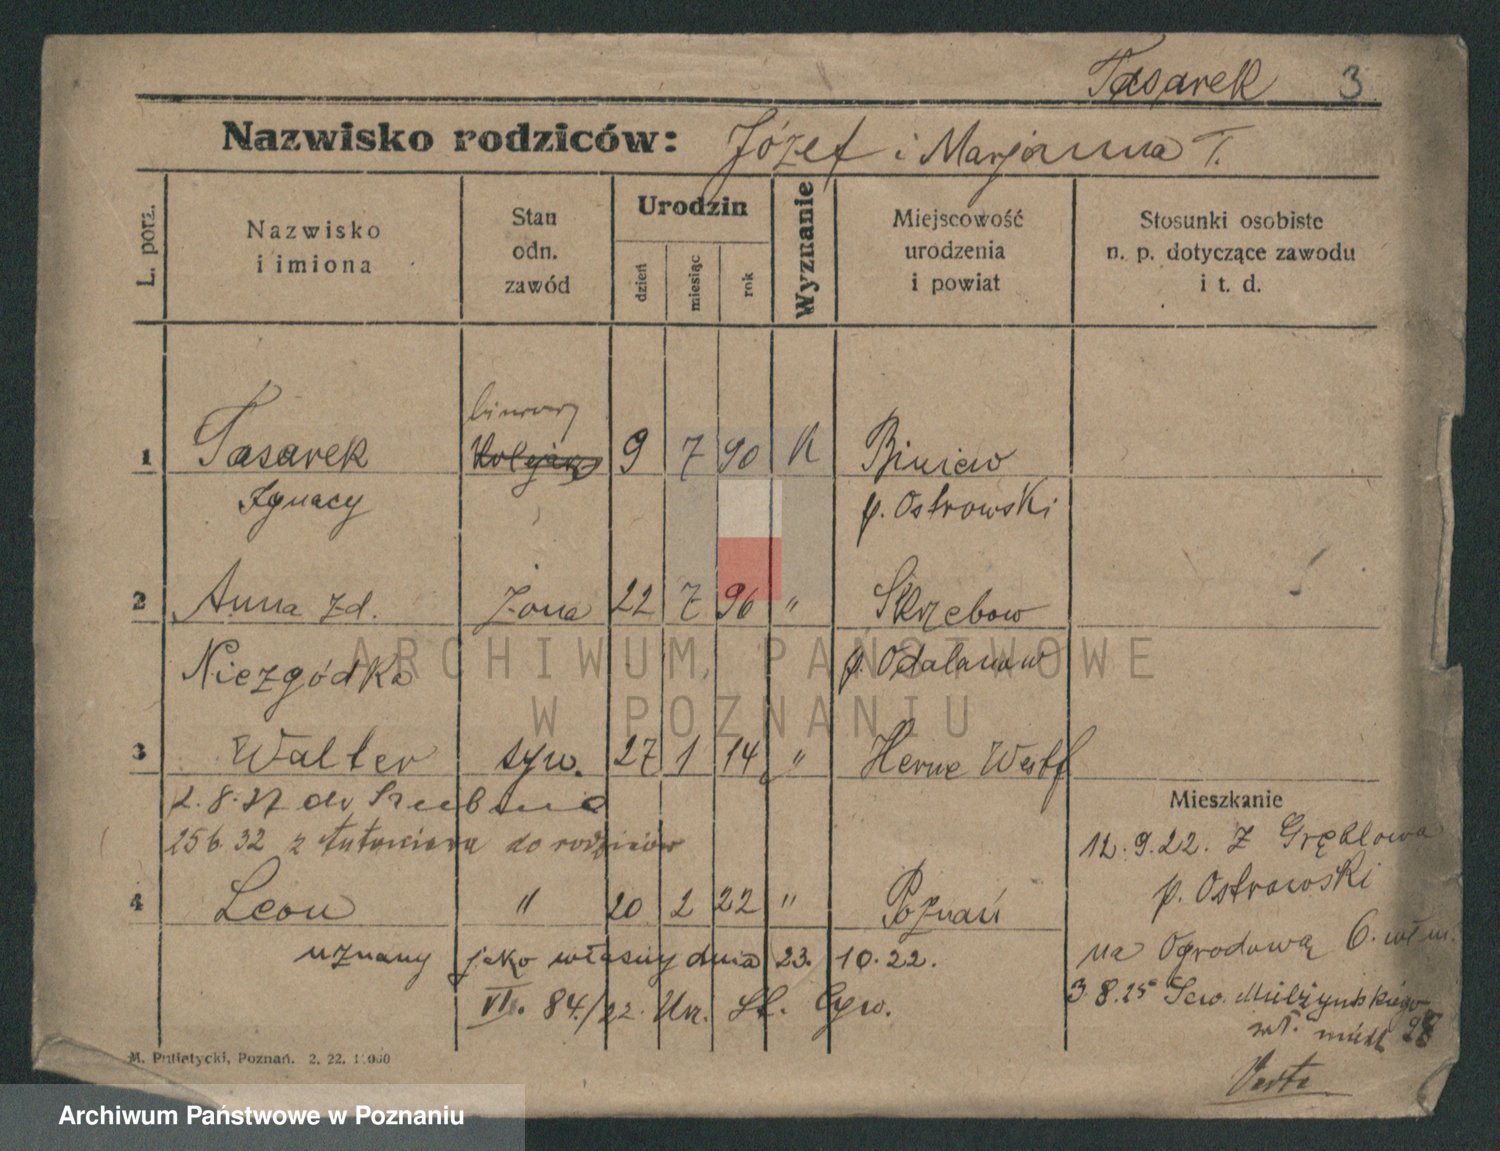 Tasarek 3
Nazwisko rodziców: Józef i Marjanna T.
L. porz.
Nazwisko
i imiona
Stan
odn.
zawód
Urodzin
dzień
miesiąc
rok
Wyznanie
Miejscowość
urodzenia
i powiat
Stosunki osobiste
n. p. dotyczące zawodu
i t. d.
1 Tasarek 9 7 90 K Biniew
Ignacy p. Ostrowski
2 Anna zd. żona 22 7 96 " Skrzebow
Niezgódka p. Odalanow
3 Walter syn. 27 1 14 " Herne Westf
2. 8. 27 do
25 6. 32 z do rodziców
Mieszkanie
12. 9. 22. z Gręblowa
p. Ostrowski
4 Leon " 20 2 22 " Poznań
uznany jako własny dnia 23. 10. 22.
VI. 84./22. Urz. St. Cyw.
na Ogrodową 6.
3. 8. 25 Sew. Mielżyńskiego
Warta
M. Putiatycki, Poznań. 2. 22. 1.000
ARCHIWUM PAŃSTWOWE
W POZNANIU
Archiwum Państwowe w Poznaniu